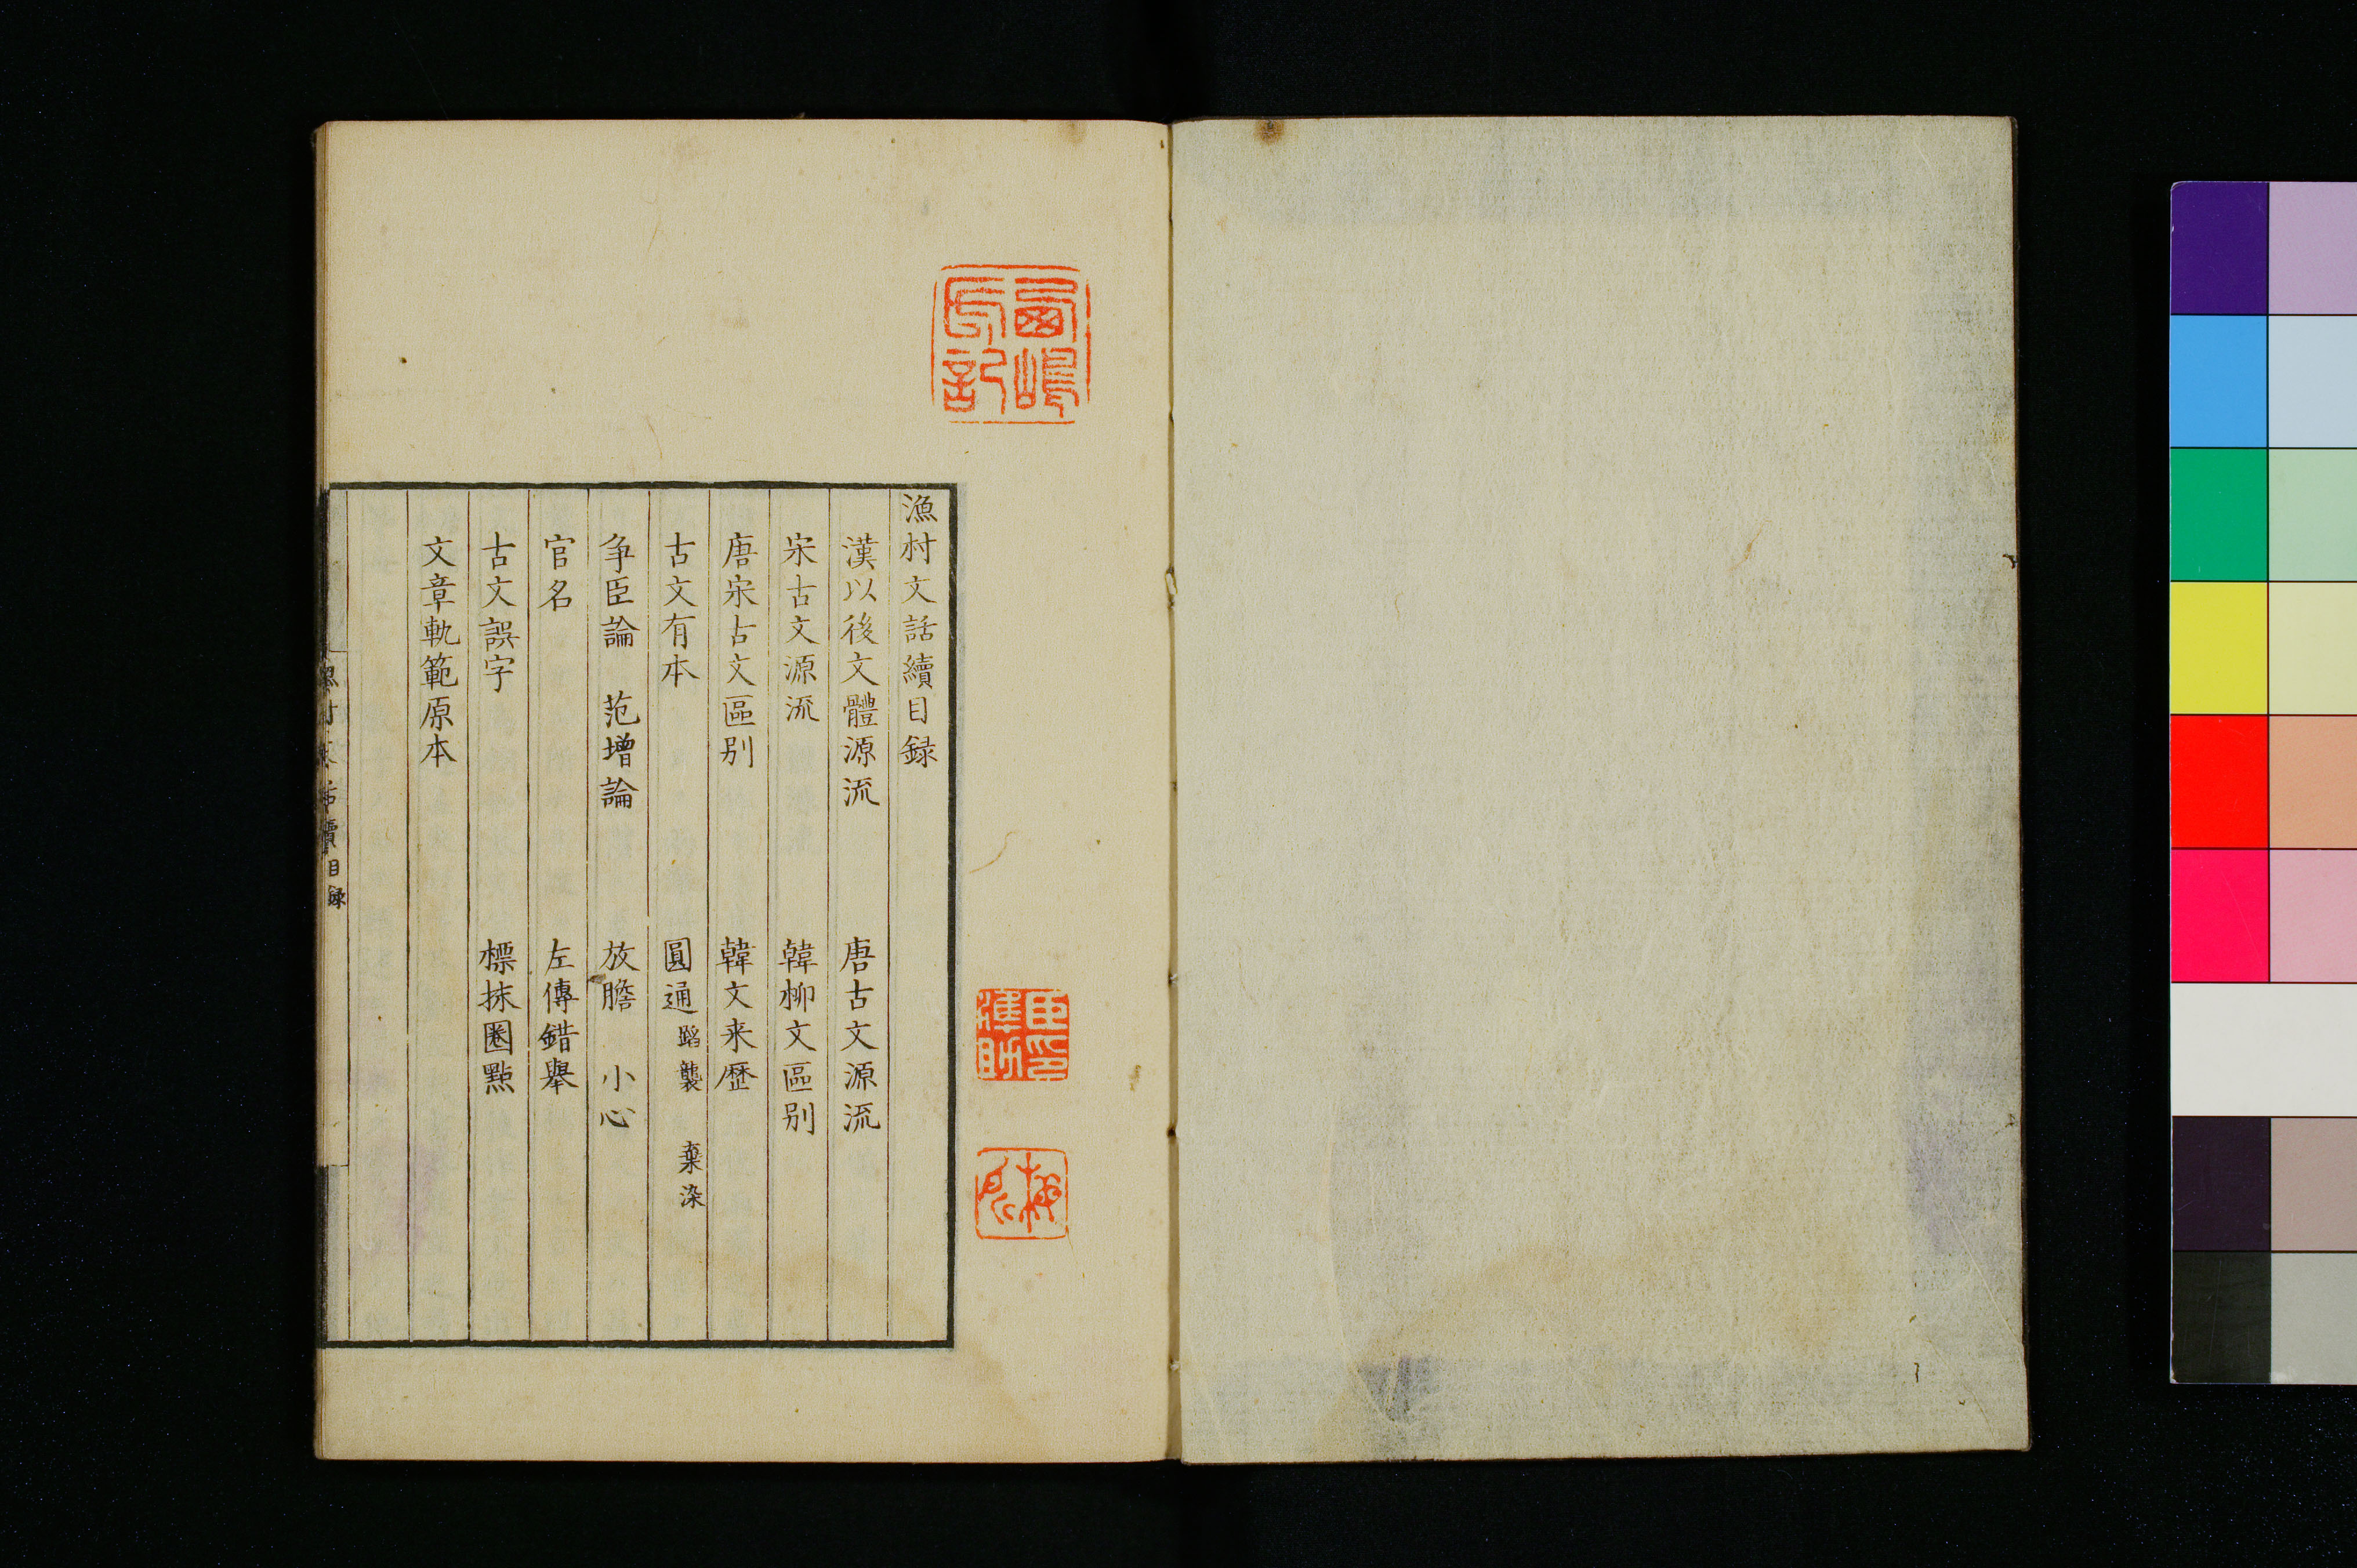 漁村文話續目録
漢以後文體源流　唐古文源流
宋古文源流　韓柳文區別
唐宋古文區別　韓文来歴
古文有本　圓通 蹈襲　棄染
争臣論　范增論　放膽　小心
官名　左傳錯舉
古文誤字　標抹圈點
文章軌範原本
漁村文話續目録